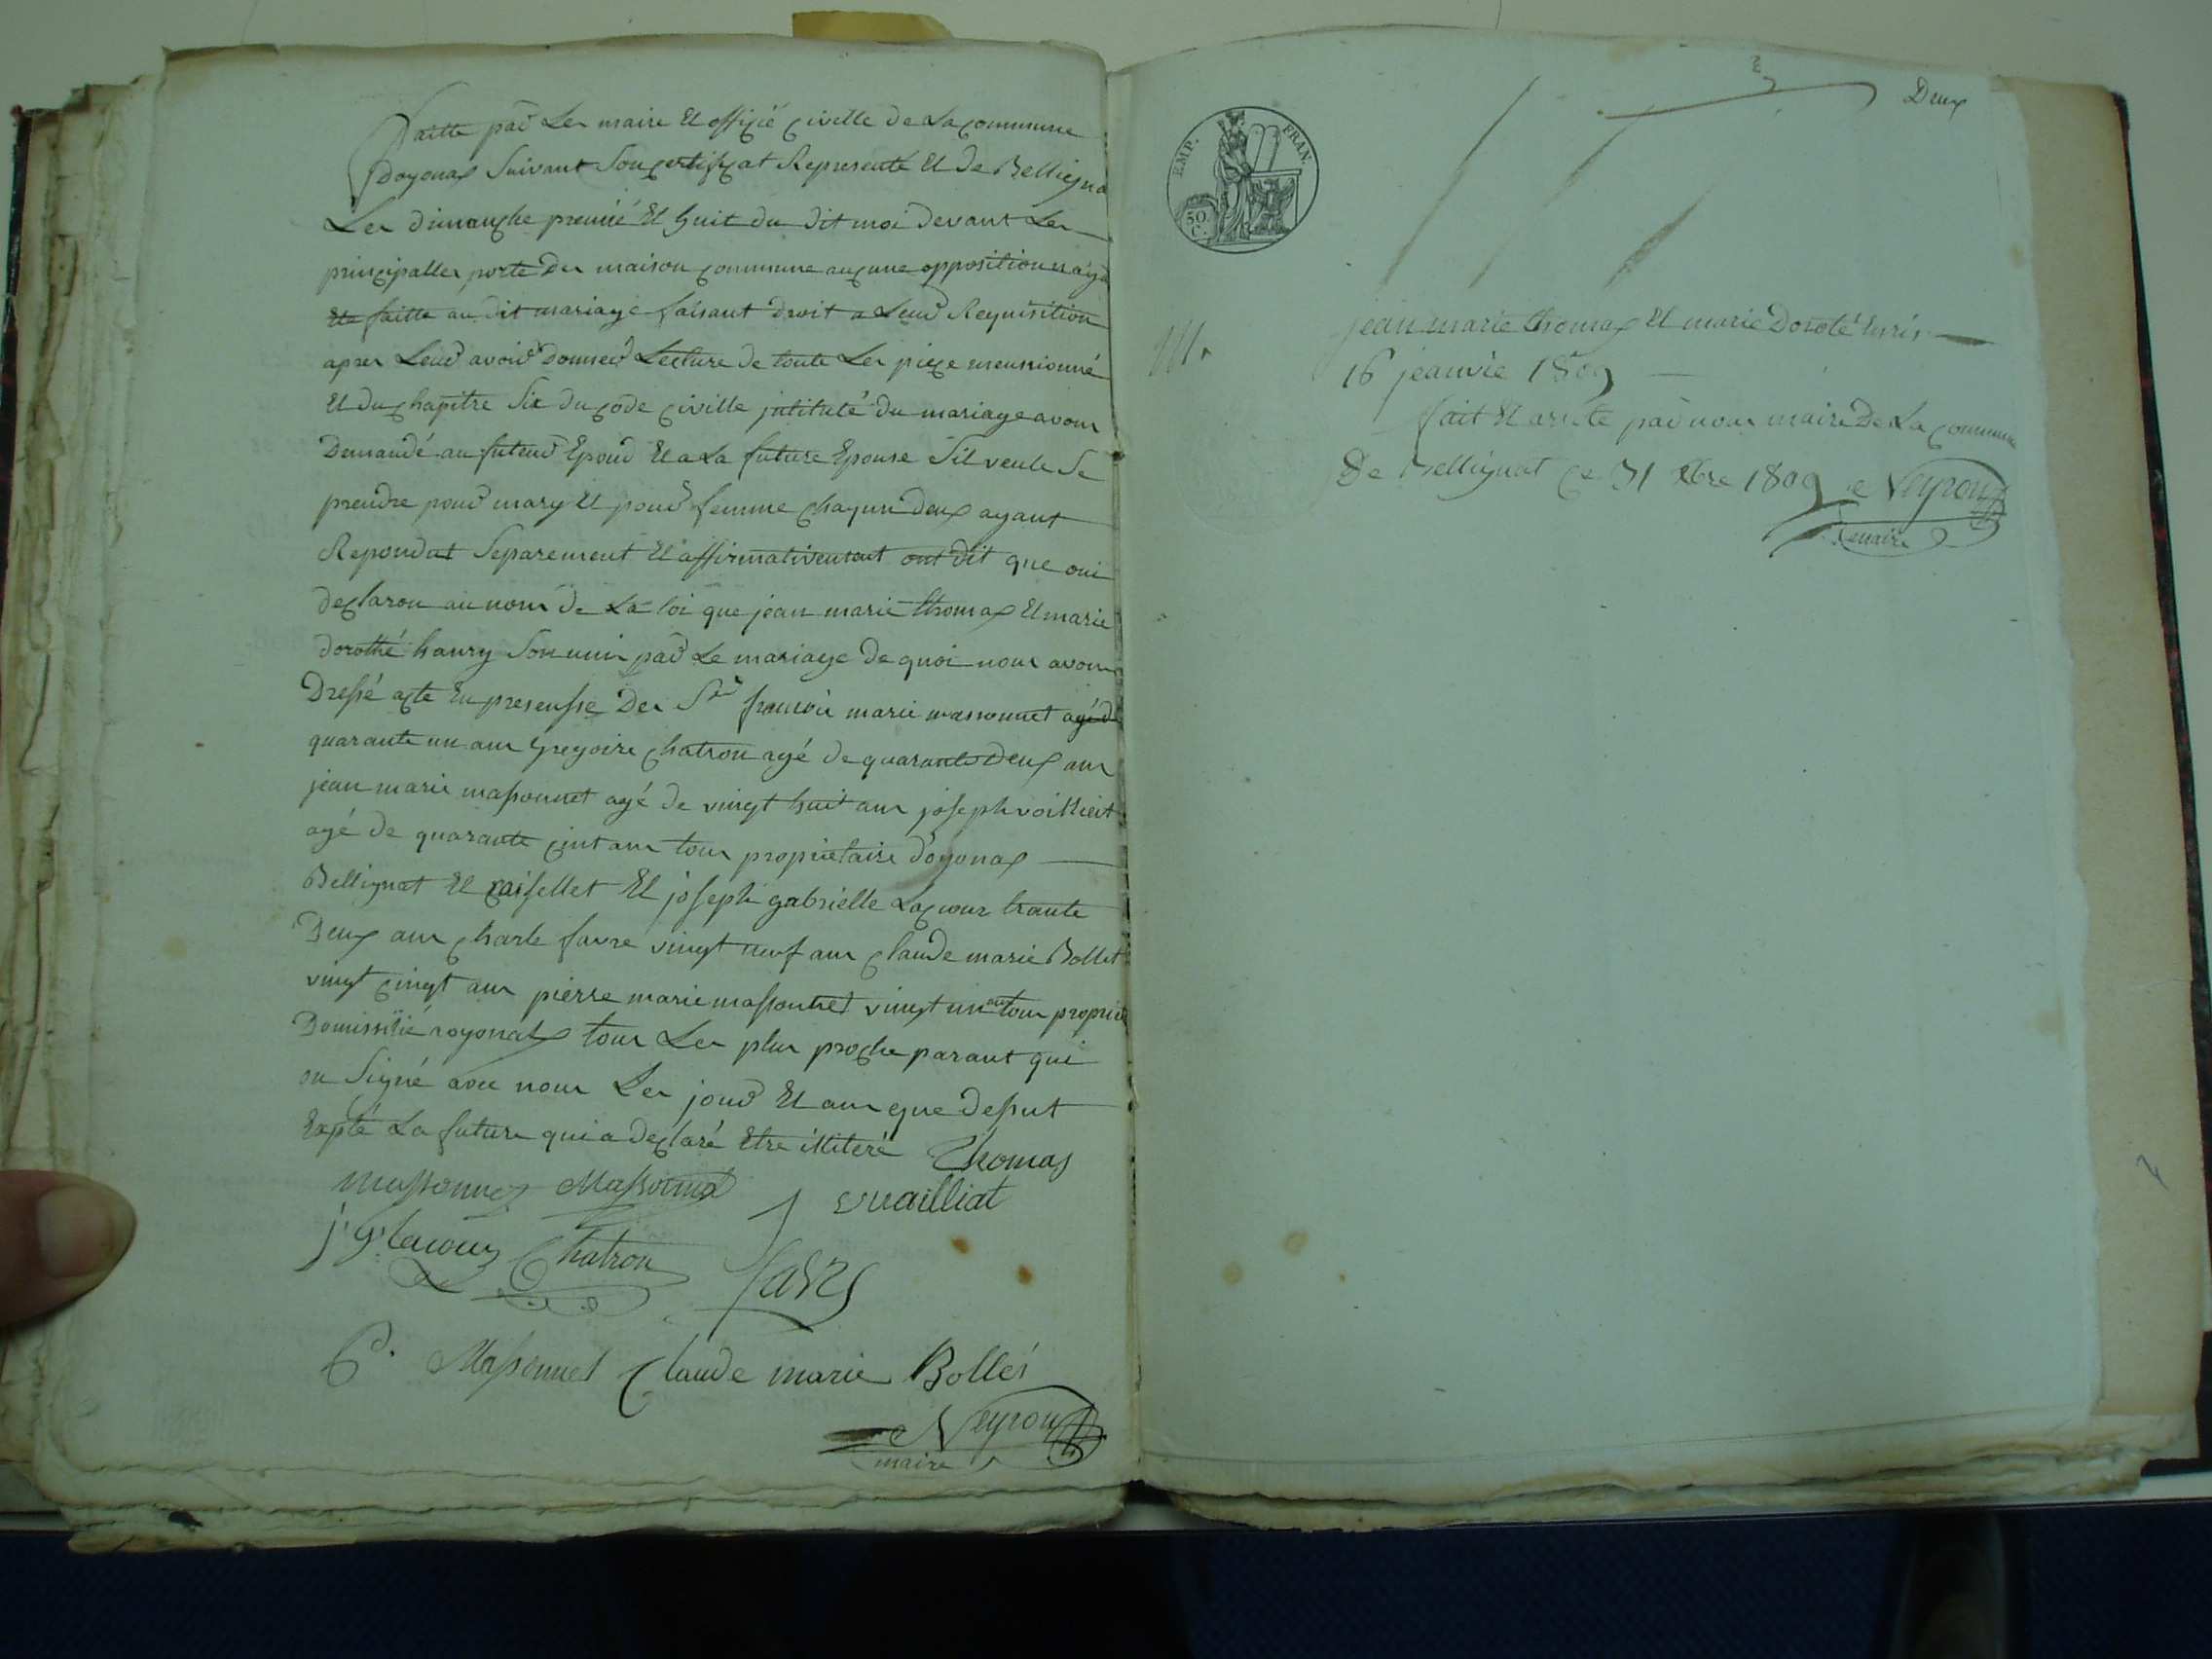 faitte par Les maire Et offixié Civille de La Commune
doyonax Suivant Son Certifxat Representé Et de Bellignat
Les dimanche premié Et huit du dit moi devant Les
principalles porte des maison Commune aucune opposition
faitte au dit mariage faisant droit a Leur Requisition
apres Leur avoir donner Lecture de toute Les piece mensionné
Et du Chapitre Six du Code Civille jntitulé du mariage avons
Demandé au futeur Epoux Et a La future Epouse Sil veule Se
prendre pour mary Et pour femme Chacun deux ayant
Repondut Separement Et affirmativement ont dit que oui
declaron au nom de La loi que jean marie thomas Et marie
dorothé hanry Son unis par Le mariage de quoi nous avons
Dressé acte En presensse Des Sr francois marie massonnet agé de
quarante un ans Gregoire Chatron agé de quarante deux ans
jean marie massonnet agé de vingt huit ans joseph voilliat
agé de quarante Cint ans tous proprietaire doyonax
Bellignat Et Et joseph gabrielle Lacour trante
Deux ans Charle favre vingt neuf ans Claude marie Bollet
vingt Cingt ans pierre marie massonnet vingt un ans tous
Domissilié aoyonax tous Les plus proche parant qui
on Signé avec nous Les jour Et ans que dessut
Expté La future qui a declaré Etre illiteré Thomas
massonnet Massonnet vuailliat
j. g. Lacour Chatron favre
P. Massonnet Claude marie Bollet
Neyron
maire
Deux
EMP. FRAN.
50 C.
jean marie thomas Et marie Doroté
16 jeanvié 1809
fait Et areté par nous maire De La Commune
De Bellignat Ce 31 Xbre 1809 Neyron
maire